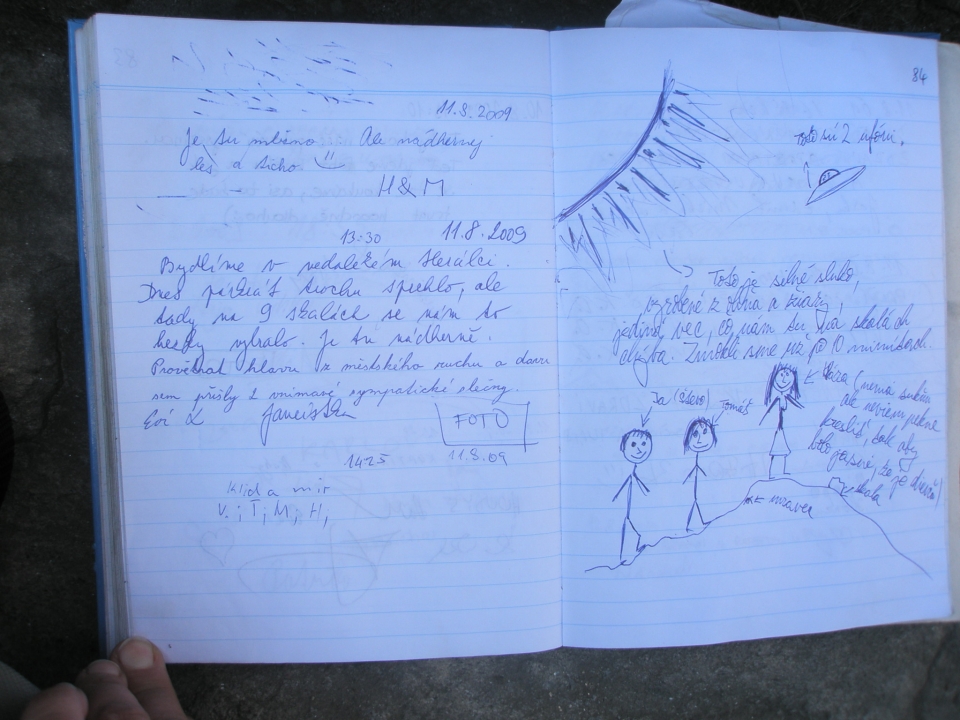 11.8.2009
Je tu mlhavo. Ale nádhernej
les a ticho
H & M
13:30 11.8.2009
Bydlíme v nedalekém
Dnes trochu sprchlo, ale
tady na 9 skalách se nám to
hezky vybralo. Je tu nádherně.
Provětrat hlavu z městského ruchu a davu
sem přišly 2 vnímavé sympatické slečny.
FOTO
1425 11.8.09
Klid a mír
V. ; T ; M ; H,
84
Toto sú 2 ufóni.
Toto je silné slnko,
vyrobené z ohňa a žiary,
jediná vec, čo nám tu na skalách
chýba. Zmokli sme už po 10 minútach.
Ja (Števo) Tomáš
(nemá sukňu
ale neviem pekne
kresliť, tak aby
bolo jasné, že je dievča)
skala
mravec